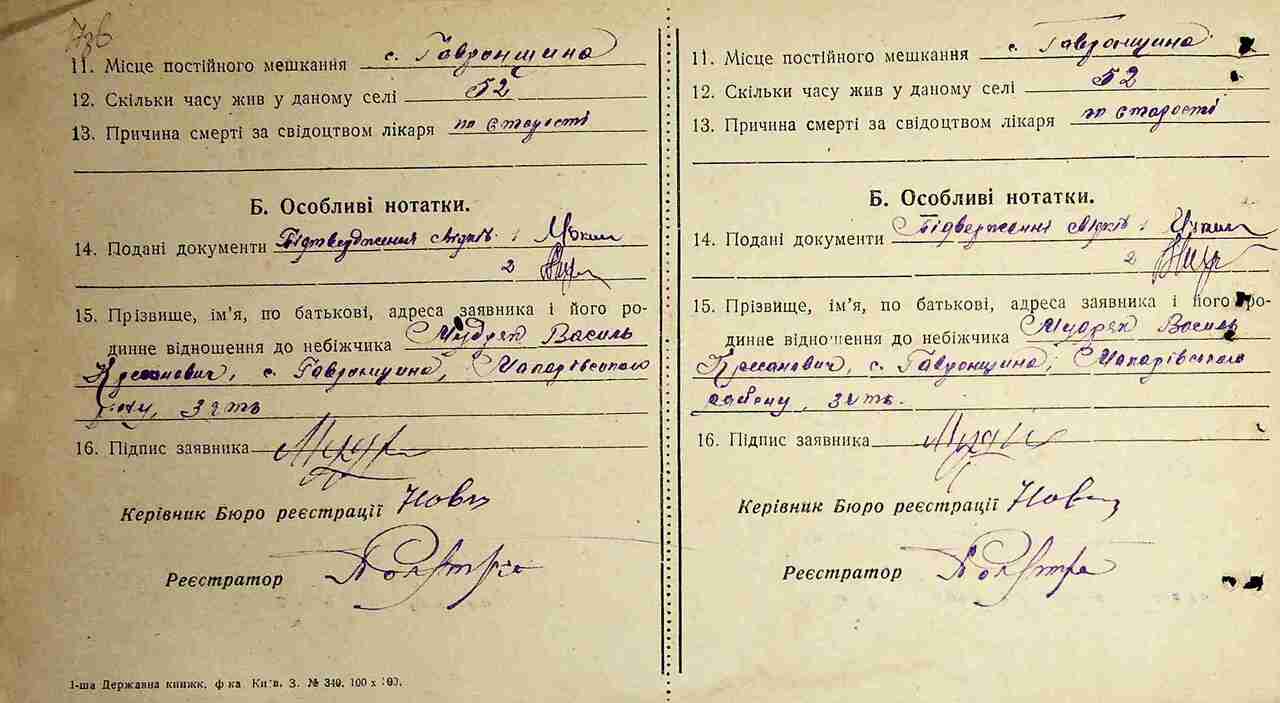 736
11. Місце постійного мешкання с. Гавронщина
12. Скільки часу жив у даному селі 52
13. Причина смерті за свідоцтвом лікаря по старості
Б. Особливі нотатки.
14. Подані документи Підтвердження
2
15. Прізвище, ім'я, по батькові, адреса заявника і його ро-
динне відношення до небіжчика Василь
с. Гавронщина, Макарівського
р-ну, зять
16. Підпис заявника
Керівник Бюро реєстрації
Реєстратор
1-ша Державна книжк. ф-ка Київ. З. № 340. 100 х 100.
11. Місце постійного мешкання с. Гавронщина
12. Скільки часу жив у даному селі 52
13. Причина смерті за свідоцтвом лікаря по старості
Б. Особливі нотатки.
14. Подані документи
2
15. Прізвище, ім'я, по батькові, адреса заявника і його ро-
динне відношення до небіжчика Василь
с. Гавронщина, Макарівського
району, зять.
16. Підпис заявника
Керівник Бюро реєстрації
Реєстратор